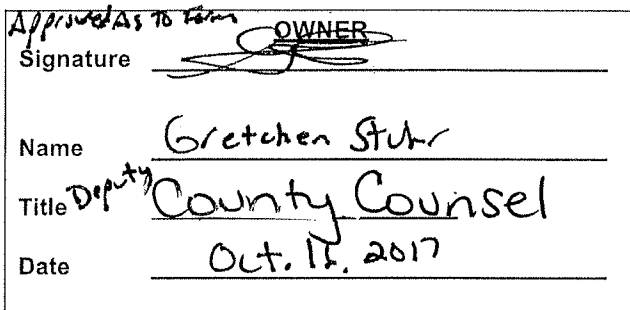 Approved As To Form
OWNER
Signature
Name Gretchen Stuhr
Title Deputy County Counsel
Date Oct. , 2017